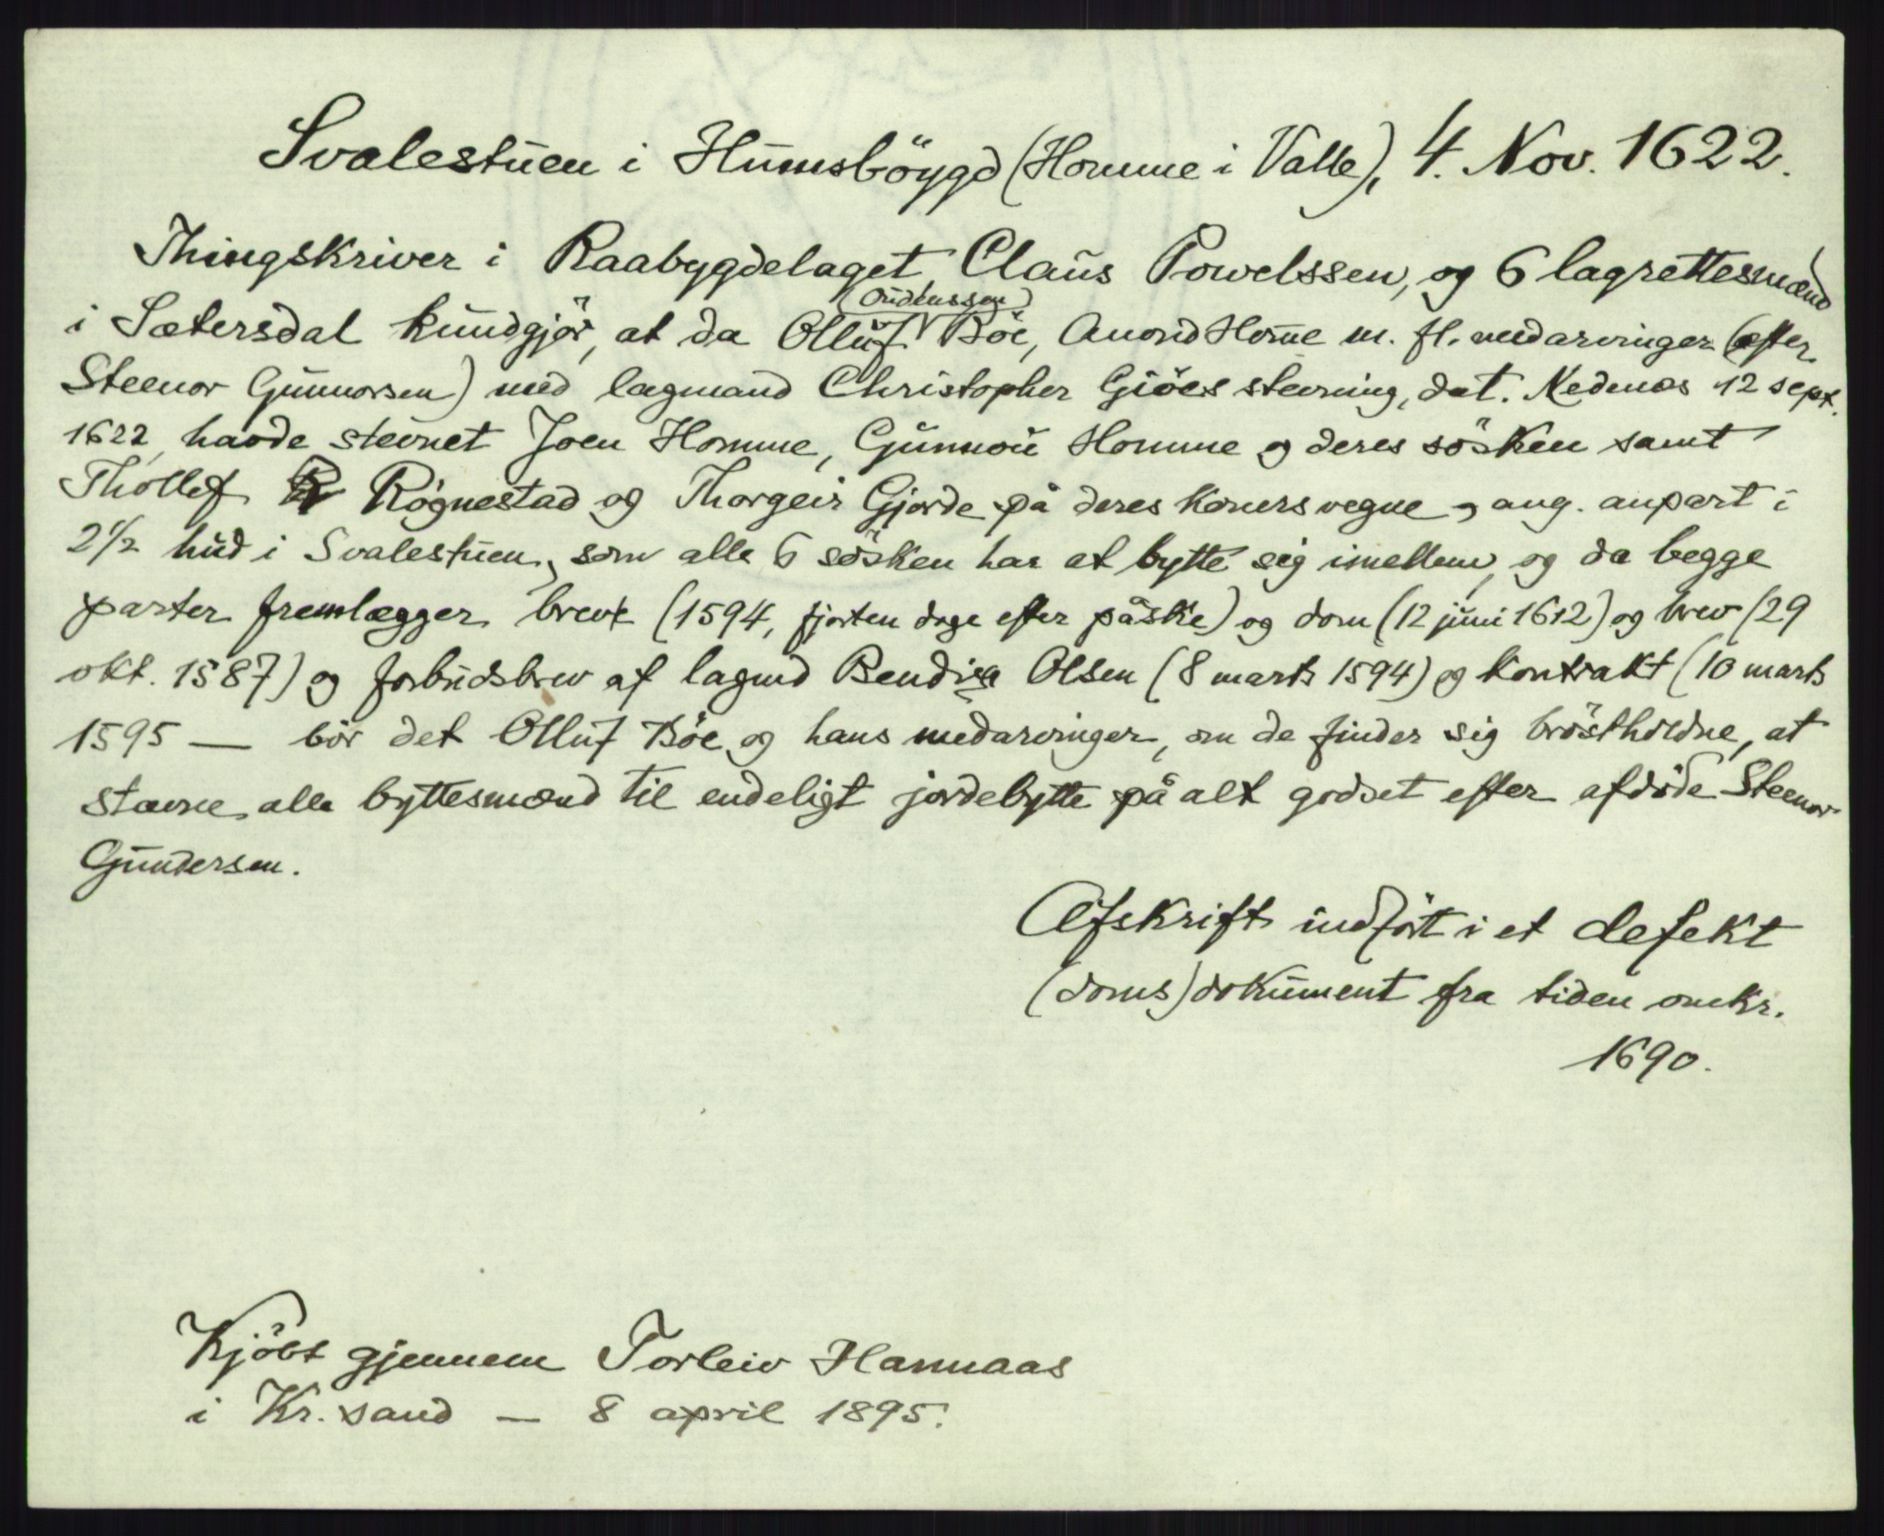 Svalestuen i Humsböygd (Homme i Valle), 4. Nov. 1622.
Thingskriver i Raabygdelaget Claus Powelssen, og 6 lagrettesmænd
i Sætersdal kundgjör, at da Olluf (Oudenssen) Böe, Anond Home m. fl. medarvinger (efter
Steenor Gunnorsen) med lagmand Christopher Giöes stevning, dat. Nedenæs 12 sept.
1622, havde stevnet Joen Homme, Gunnou Homme og deres sösken samt
Thollef Rögnestad og Thorgeir Gjorde på deres koners vegne, ang. anpart i
2 1/2 hud i Svalestuen, som alle 6 sösken har at bytte sig imellem, og da begge
parter fremlægger brev (1594, fjorten dage efter påske) og dom (12 juni 1612) og brev (29
okt. 1587) og forbudsbrev af lagmd Bendixs Olsen (8 marts 1594) og kontrakt (10 marts
1595 — bör det Olluf Böe og hans medarvinger, om de finder sig brösthòldne, at
stævne alle byttesmænd til endeligt jordebytte på alt godset efter afdöde Steenor
Gundersen.
Afskrift indfört i et defekt
(doms)dokument fra tiden omkr.
1690.
Kjöbt gjennem Torleiv Hannaas
i Kr.sand — 8 april 1895.